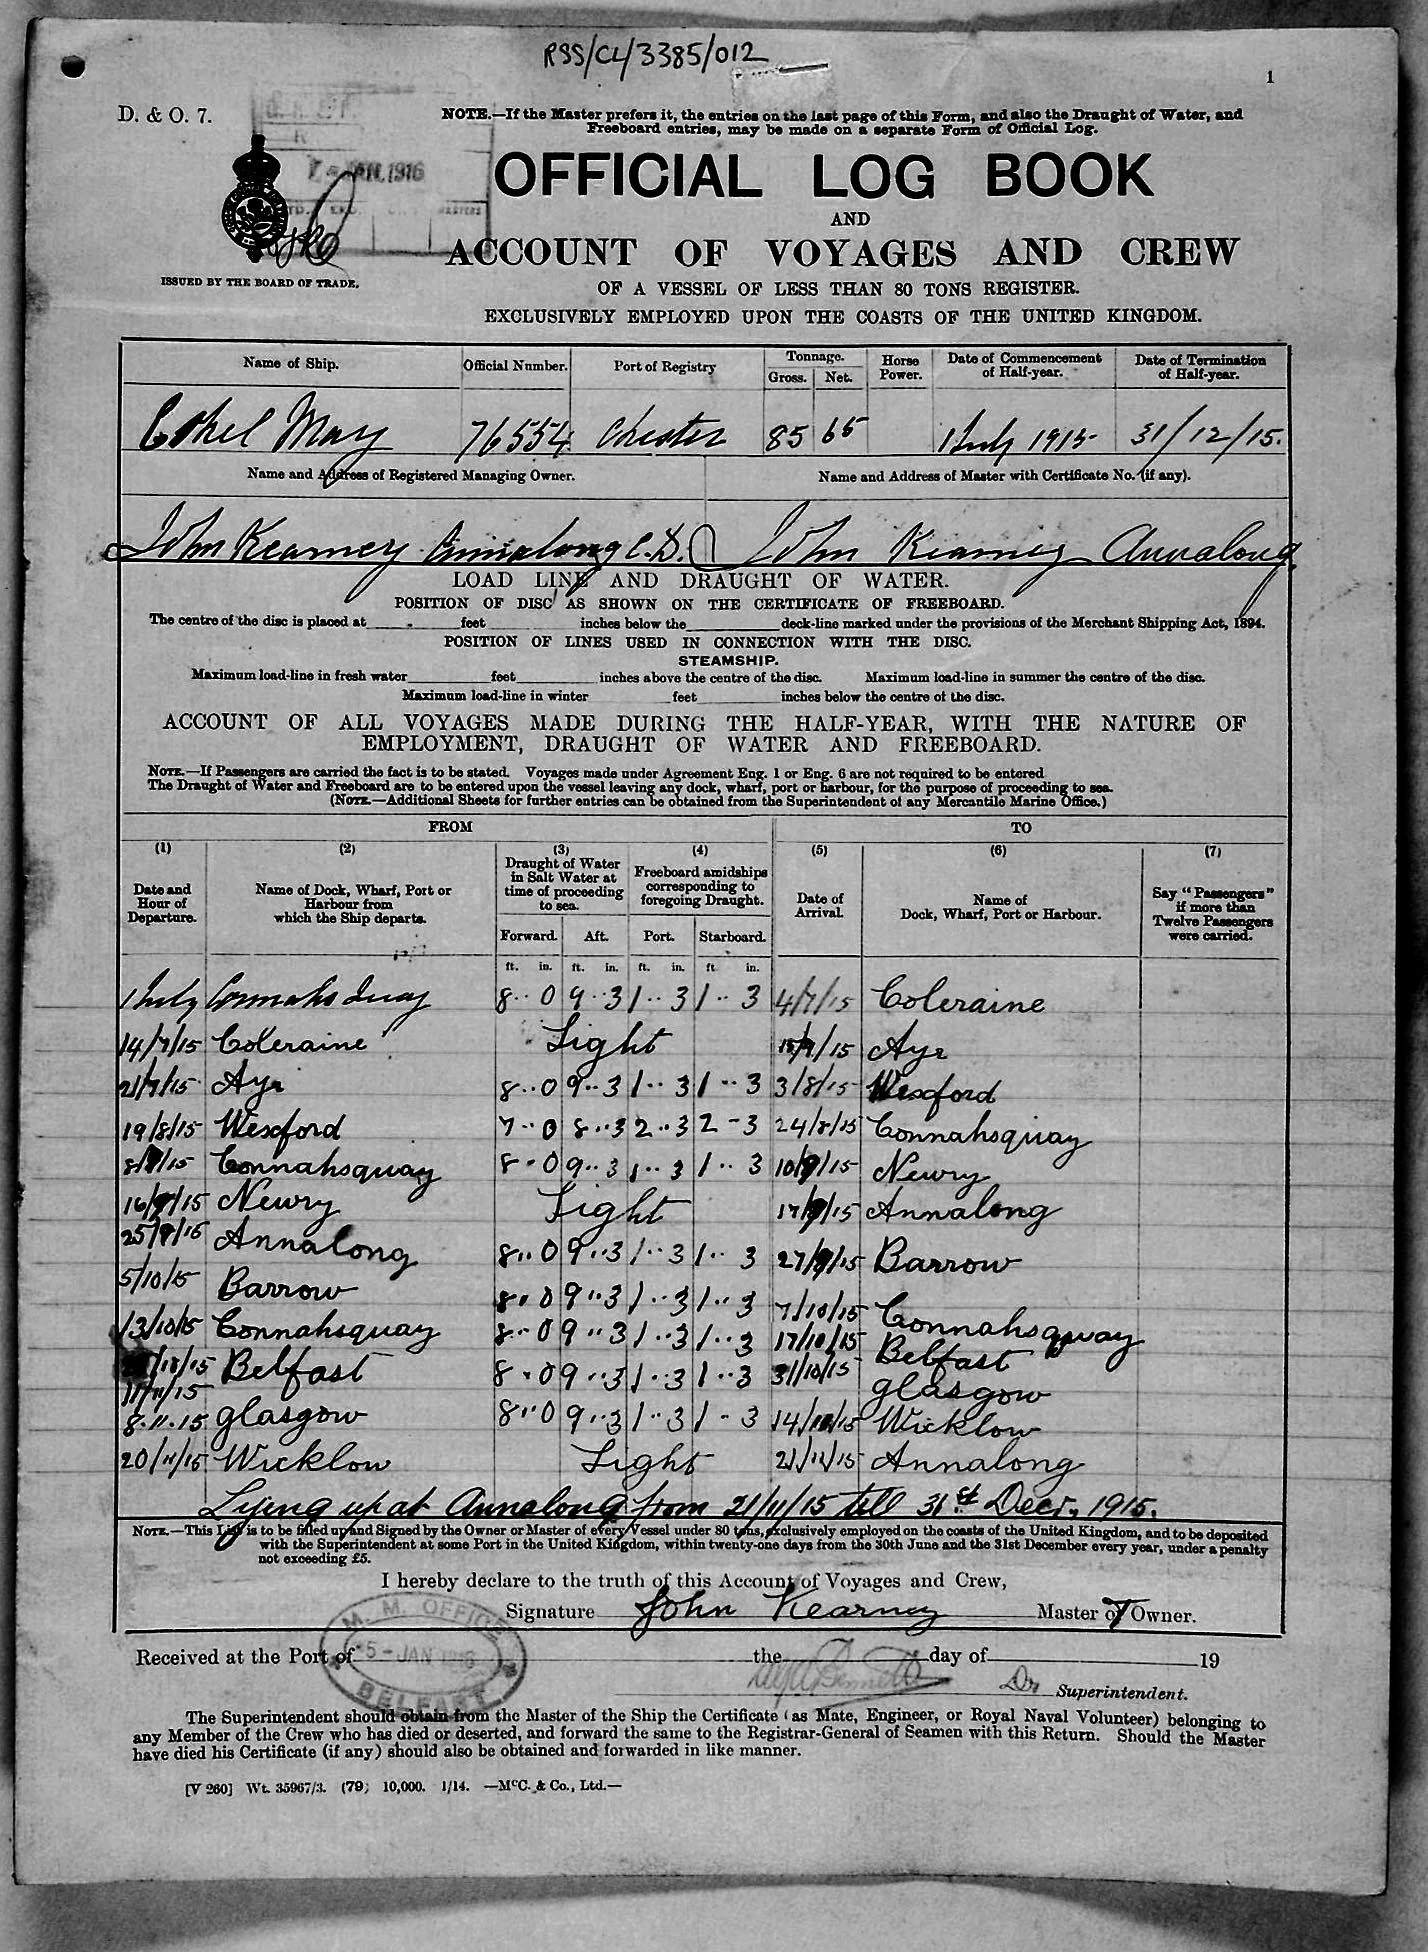 RSS/CL/3385/012
1
D. & O. 7.
NOTE.—If the Master prefers it, the entries on the last page of this Form, and also the Draught of Water, and
Freeboard entries, may be made on a separate Form of Official Log.
JAN. 1916
OFFICIAL LOG BOOK
AND
ACCOUNT OF VOYAGES AND CREW
ISSUED BY THE BOARD OF TRADE.
OF A VESSEL OF LESS THAN 80 TONS REGISTER.
EXCLUSIVELY EMPLOYED UPON THE COASTS OF THE UNITED KINGDOM.
Name of Ship. Official Number. Port of Registry Tonnage. Gross. Net. Horse Power. Date of Commencement of Half-year. Date of Termination of Half-year.
Ethel May 76554 Chester 85 65 1 July 1915 31/12/15.
Name and Address of Registered Managing Owner. Name and Address of Master with Certificate No. (if any).
John Kearney Annalong C.D. John Kearney Annalong.
LOAD LINE AND DRAUGHT OF WATER.
POSITION OF DISC AS SHOWN ON THE CERTIFICATE OF FREEBOARD.
The centre of the disc is placed at feet inches below the deck-line marked under the provisions of the Merchant Shipping Act, 1894.
POSITION OF LINES USED IN CONNECTION WITH THE DISC.
STEAMSHIP.
Maximum load-line in fresh water feet inches above the centre of the disc. Maximum load-line in summer the centre of the disc.
Maximum load-line in winter feet inches below the centre of the disc.
ACCOUNT OF ALL VOYAGES MADE DURING THE HALF-YEAR, WITH THE NATURE OF
EMPLOYMENT, DRAUGHT OF WATER AND FREEBOARD.
NOTE.—If Passengers are carried the fact is to be stated. Voyages made under Agreement Eng. 1 or Eng. 6 are not required to be entered
The Draught of Water and Freeboard are to be entered upon the vessel leaving any dock, wharf, port or harbour, for the purpose of proceeding to sea.
(NOTE.—Additional Sheets for further entries can be obtained from the Superintendent of any Mercantile Marine Office.)
FROM TO
(1) (2) (3) (4) (5) (6) (7)
Date and Hour of Departure. Name of Dock, Wharf, Port or Harbour from which the Ship departs. Draught of Water in Salt Water at time of proceeding to sea. Freeboard amidships corresponding to foregoing Draught. Date of Arrival. Name of Dock, Wharf, Port or Harbour. Say "Passengers" if more than Twelve Passengers were carried.
Forward. Aft. Port. Starboard.
ft. in. ft. in. ft. in. ft in.
1 July Connahs Quay 8·· 0 9··3 1··3 1··3 4/7/15 Coleraine
14/7/15 Coleraine Light /15 Ayr
21/7/15 Ayr 8··0 9··3 1··3 1··3 3/8/15 Wexford
19/8/15 Wexford 7··0 8··3 2··3 2-3 24/8/15 Connahsquay
8/9/15 Connahsquay 8·0 9··3 1··3 1··3 10/9/15 Newry
16/9/15 Newry Light 17/9/15 Annalong
25/9/15 Annalong 8··0 9··3 1··3 1··3 27/9/15 Barrow
5/10/15 Barrow 8··0 9··3 1··3 1··3 7/10/15 Connahsquay
13/10/15 Connahsquay 8··0 9··3 1··3 1··3 17/10/15 Belfast
/10/15 Belfast 8··0 9··3 1··3 1··3 31/10/15 Glasgow
11/11/15
8·11·15 Glasgow 8··0 9··3 1··3 1·3 14/ /15 Wicklow
20/11/15 Wicklow Light 21/11/15 Annalong
Lying up at Annalong from 21/11/15 till 31st Decr. 1915.
NOTE.—This List is to be filled up and Signed by the Owner or Master of every Vessel under 80 tons, exclusively employed on the coasts of the United Kingdom, and to be deposited
with the Superintendent at some Port in the United Kingdom, within twenty-one days from the 30th June and the 31st December every year, under a penalty
not exceeding £5.
I hereby declare to the truth of this Account of Voyages and Crew,
Signature John Kearney Master or Owner.
M. M. OFFICE
5 - JAN 1916
BELFAST
Received at the Port of the day of 19
Bennett Superintendent.
The Superintendent should obtain from the Master of the Ship the Certificate (as Mate, Engineer, or Royal Naval Volunteer) belonging to
any Member of the Crew who has died or deserted, and forward the same to the Registrar-General of Seamen with this Return. Should the Master
have died his Certificate (if any) should also be obtained and forwarded in like manner.
[V 260] Wt. 35967/3. (79) 10,000. 1/14. —McC. & Co., Ltd.—